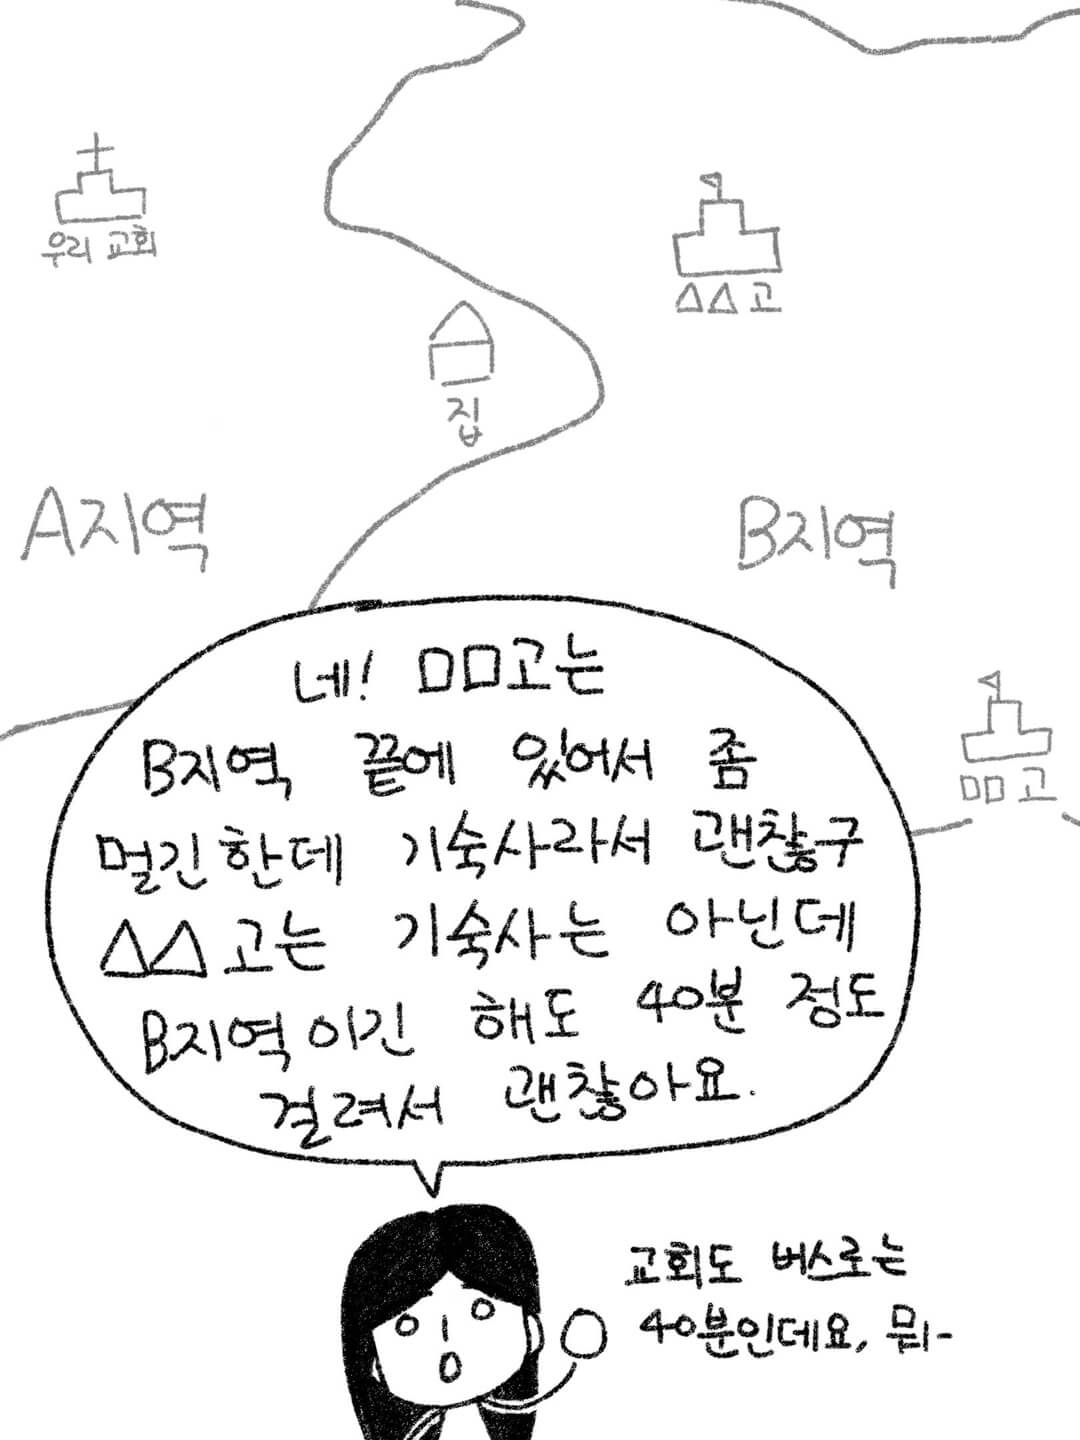 우리 교회
△△고
집
A지역
B지역
네! □□고는
B지역 끝에 있어서 좀
멀긴한데 기숙사라서 괜찮구
△△고는 기숙사는 아닌데
B지역이긴 해도 40분 정도
걸려서 괜찮아요.
□□고
교회도 버스로는
40분인데요, 뭐-